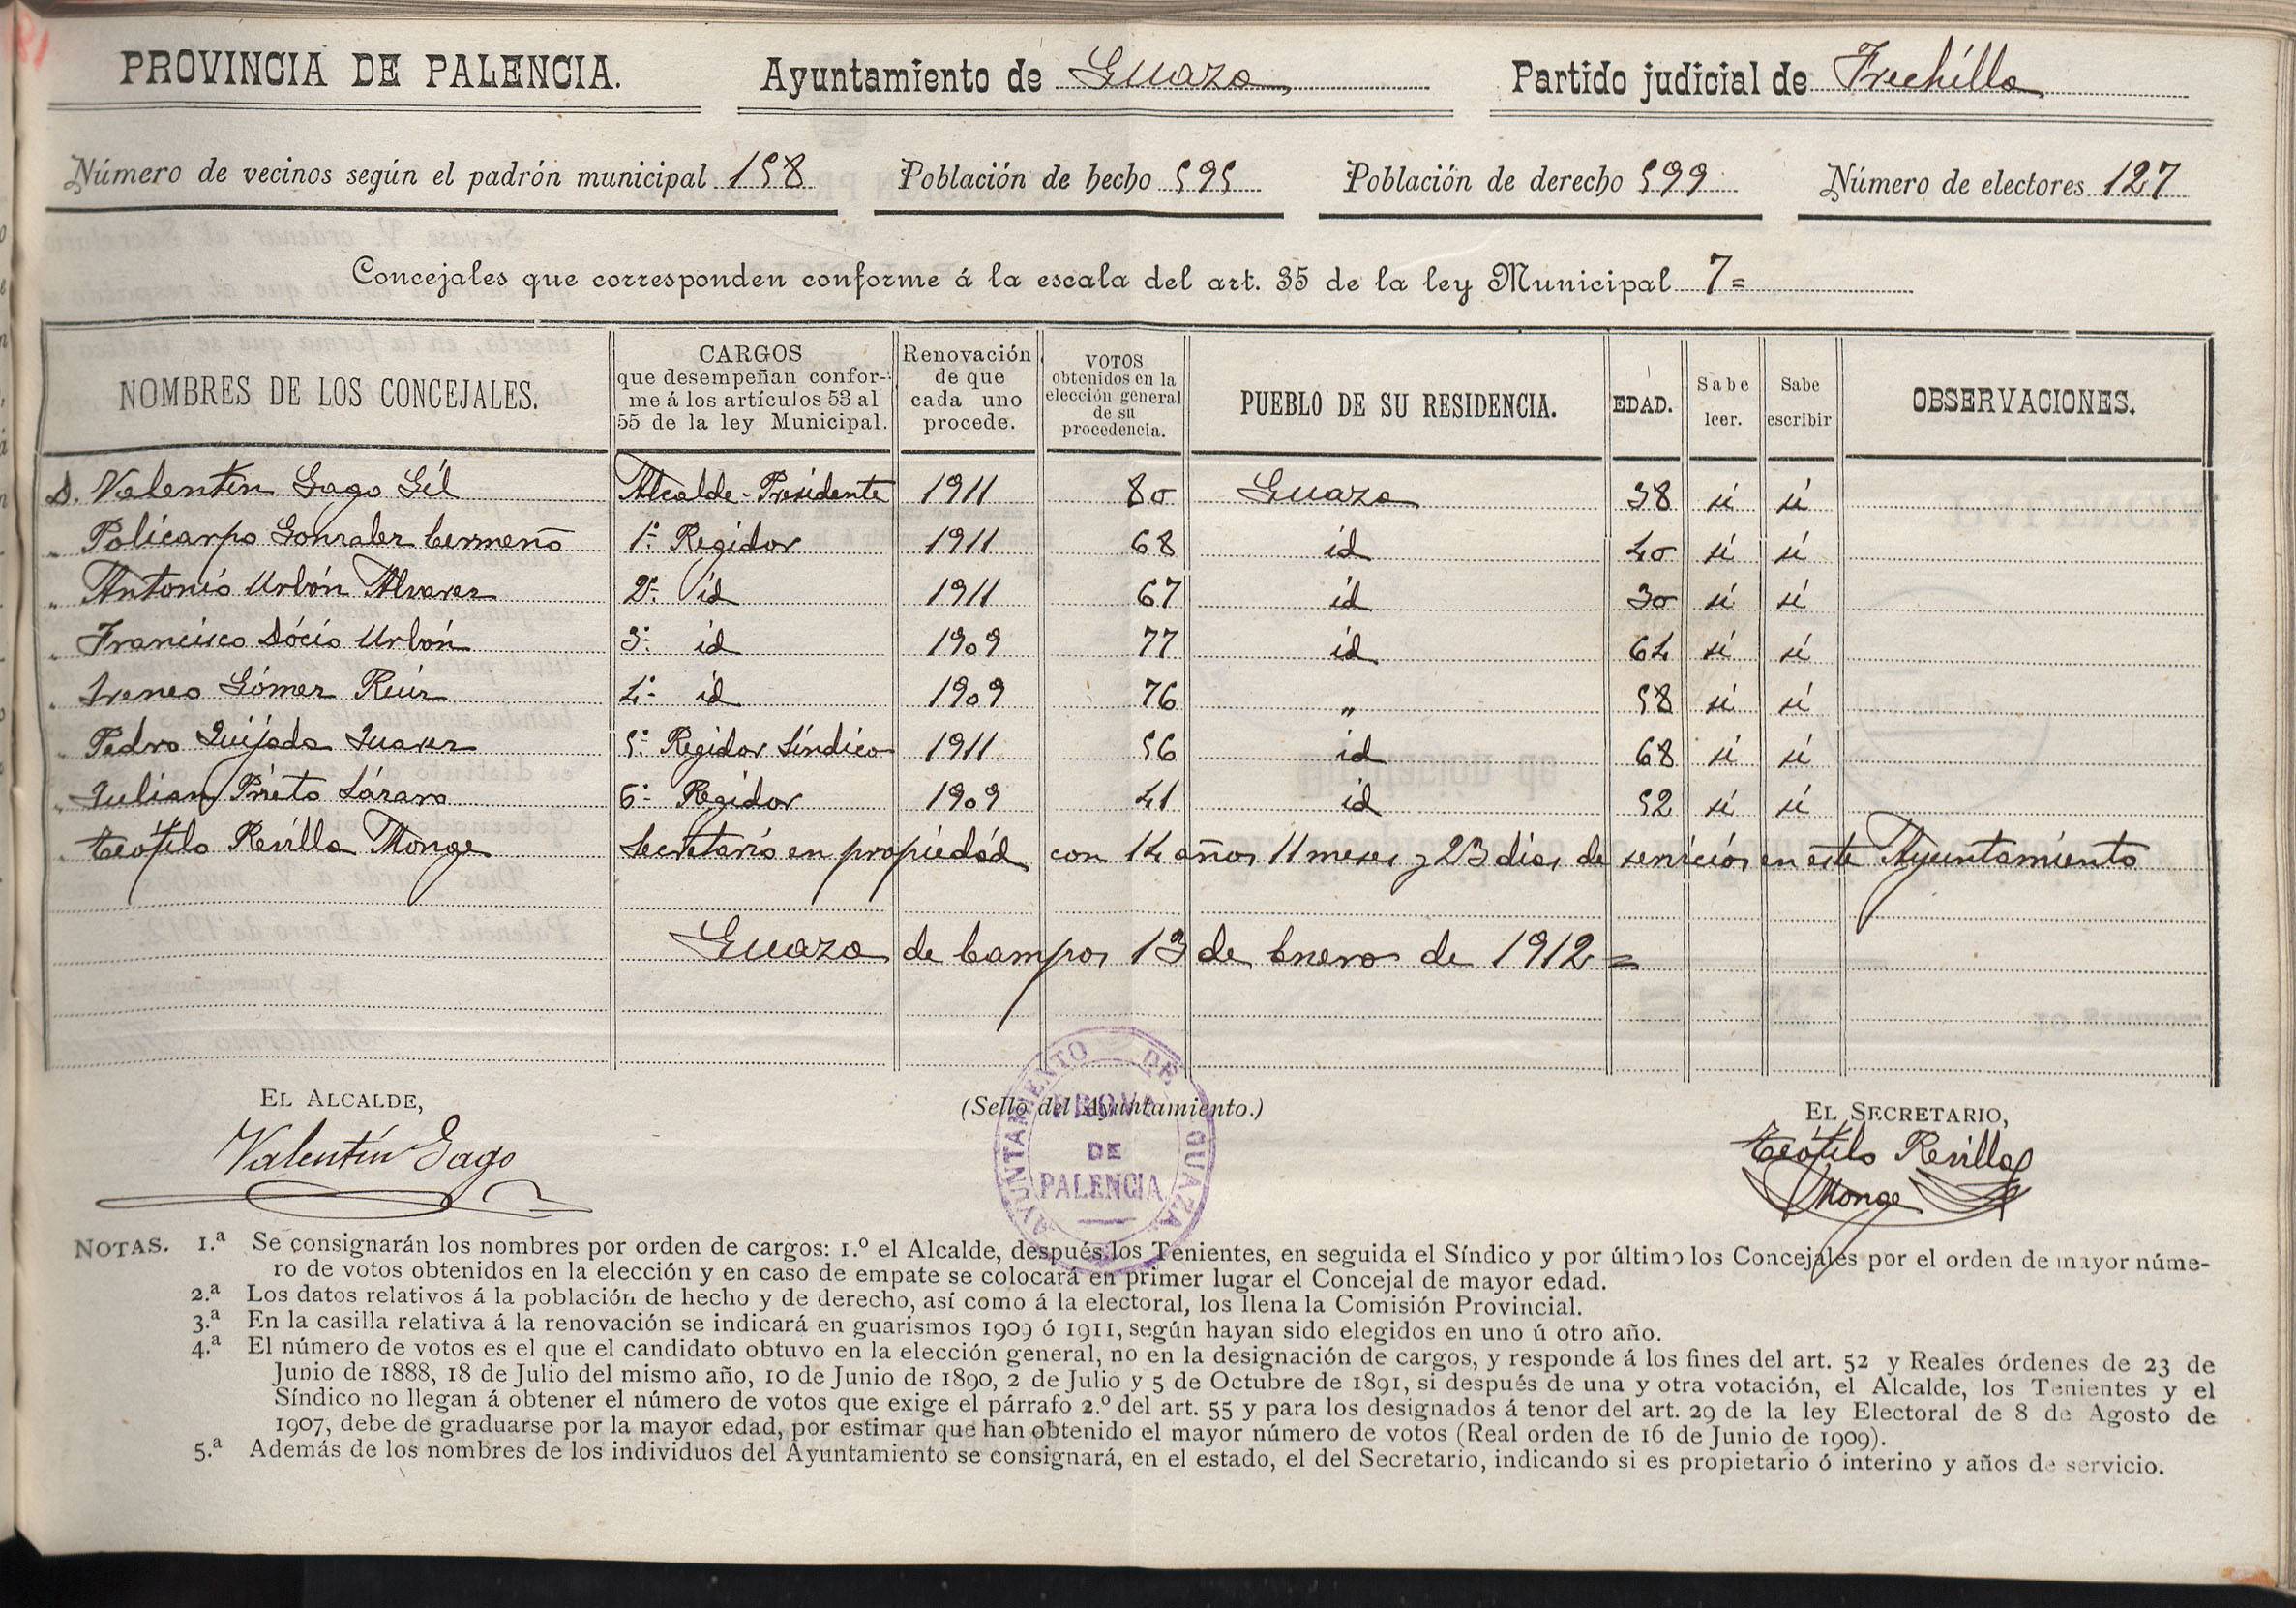 PROVINCIA DE PALENCIA. Ayuntamiento de Guaza Partido judicial de Frechilla
Número de vecinos según el padrón municipal 158 Población de hecho 595 Población de derecho 599 Número de electores 127
Concejales que corresponden conforme á la escala del art. 35 de la ley Municipal 7=
NOMBRES DE LOS CONCEJALES.
CARGOS
que desempeñan confor-
me á los artículos 53 al
55 de la ley Municipal.
Renovación
de que
cada uno
procede.
VOTOS
obtenidos en la
elección general
de su
procedencia.
PUEBLO DE SU RESIDENCIA.
EDAD.
Sabe
leer.
Sabe
escribir
OBSERVACIONES.
D. Valentín Gago Gil Alcalde-Presidente 1911 80 Guaza 38 sí sí
" Policarpo Gonzalez Cermeño 1º Regidor 1911 68 id 40 sí sí
" Antonio Urbón Alvarez 2º id 1911 67 id 30 sí sí
" Francisco Dócio Urbón 3º id 1909 77 id 64 sí sí
" Ireneo Gómez Ruiz 4º id 1909 76 " 58 sí sí
" Pedro Quijada Juarez 5º Regidor Síndico 1911 56 id 68 sí sí
" Julian Prieto Lázaro 6º Regidor 1909 41 id 52 sí sí
" Teófilo Revilla Monge Secretario en propiedád con 14 años 11 meses y 23 dias de servicios en este Ayuntamiento
Guaza de Campos 13 de Enero de 1912=
EL ALCALDE,
Valentín Gago
(Sello del Ayuntamiento.)
AYUNTAMIENTO DE GUAZA
PROVA
DE
PALENCIA
EL SECRETARIO,
Teófilo Revilla
Monge
NOTAS. 1.ª Se consignarán los nombres por orden de cargos: 1.º el Alcalde, después los Tenientes, en seguida el Síndico y por último los Concejales por el orden de mayor núme-
ro de votos obtenidos en la elección y en caso de empate se colocará en primer lugar el Concejal de mayor edad.
2.ª Los datos relativos á la población de hecho y de derecho, así como á la electoral, los llena la Comisión Provincial.
3.ª En la casilla relativa á la renovación se indicará en guarismos 1909 ó 1911, según hayan sido elegidos en uno ú otro año.
4.ª El número de votos es el que el candidato obtuvo en la elección general, no en la designación de cargos, y responde á los fines del art. 52 y Reales órdenes de 23 de
Junio de 1888, 18 de Julio del mismo año, 10 de Junio de 1890, 2 de Julio y 5 de Octubre de 1891, si después de una y otra votación, el Alcalde, los Tenientes y el
Síndico no llegan á obtener el número de votos que exige el párrafo 2.º del art. 55 y para los designados á tenor del art. 29 de la ley Electoral de 8 de Agosto de
1907, debe de graduarse por la mayor edad, por estimar que han obtenido el mayor número de votos (Real orden de 16 de Junio de 1909).
5.ª Además de los nombres de los individuos del Ayuntamiento se consignará, en el estado, el del Secretario, indicando si es propietario ó interino y años de servicio.